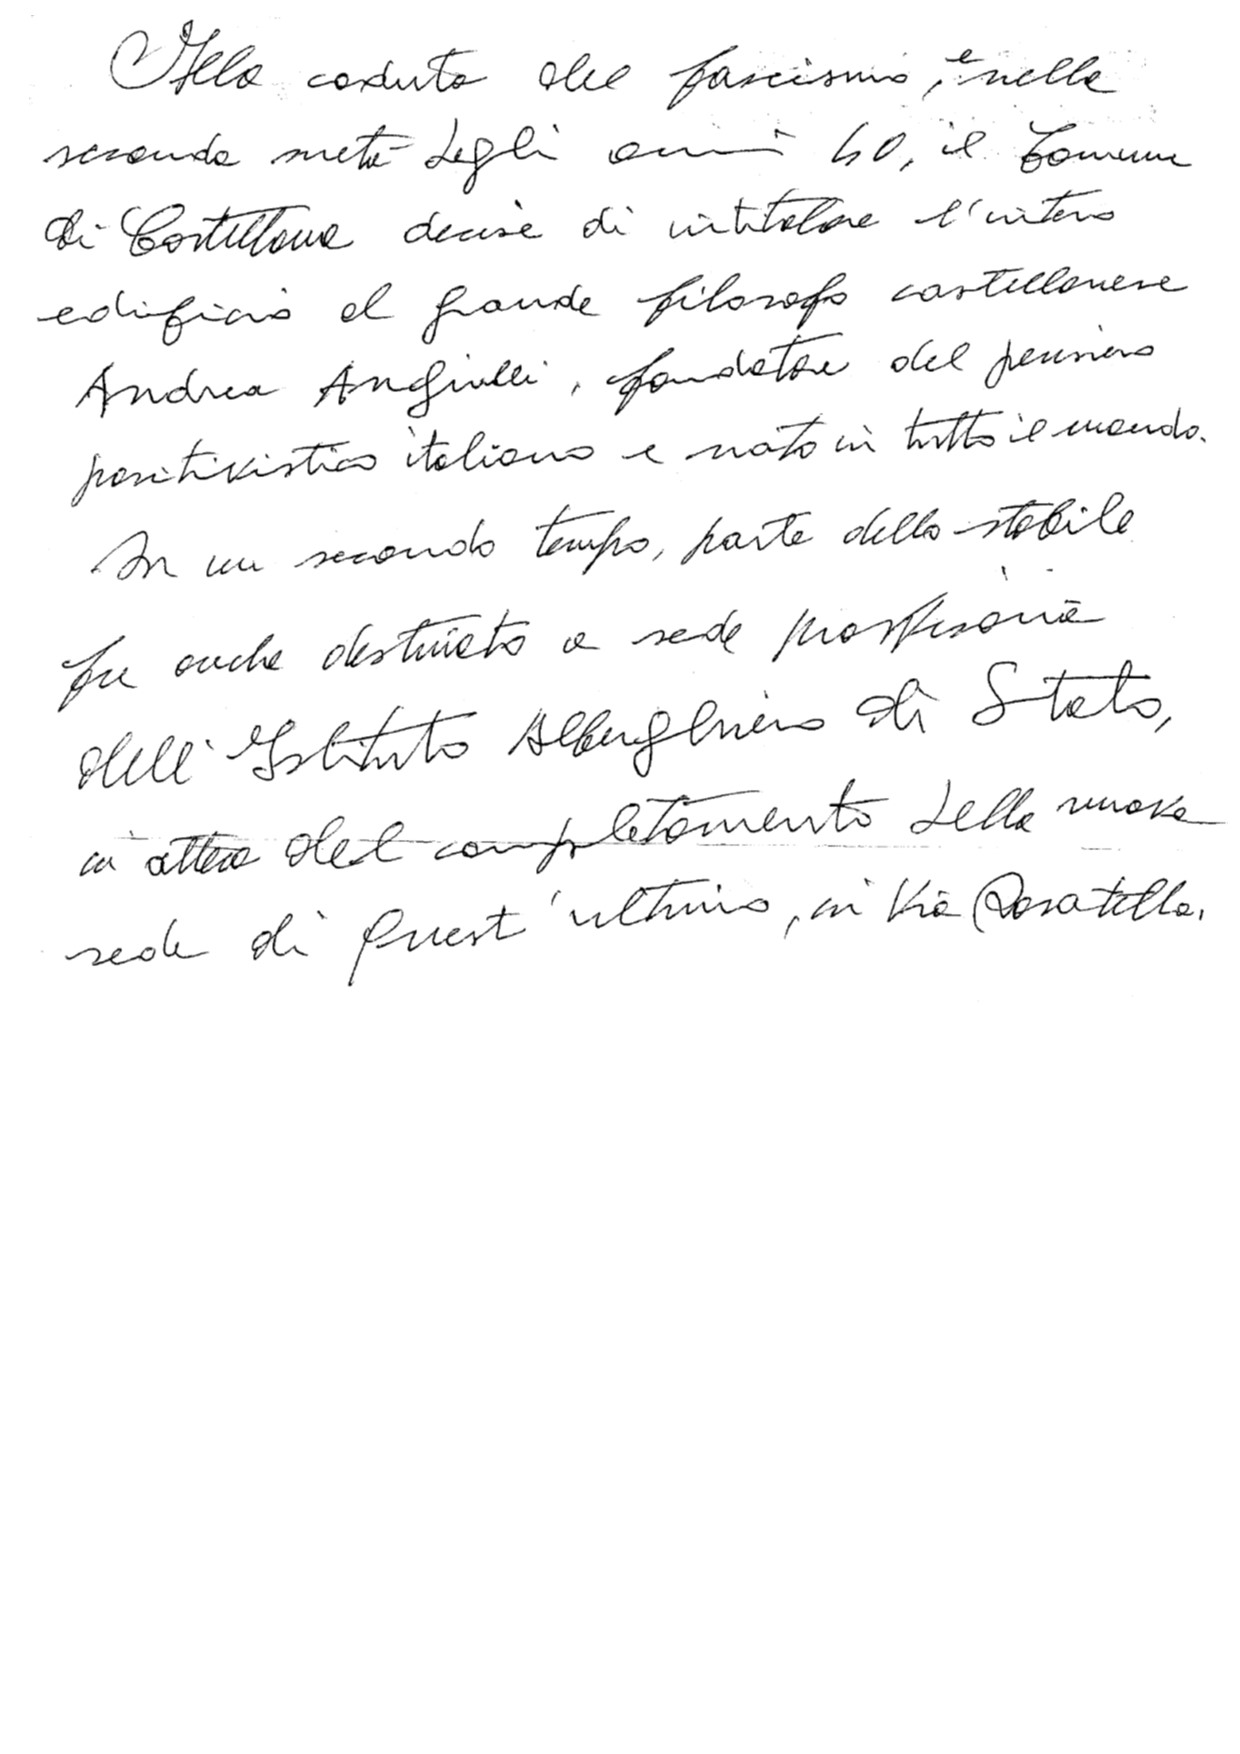 Alla caduta del fascismo, e nella
seconda metà degli anni 40, il Comune
di Castellana decise di intitolare l'intero
edificio al grande filosofo castellanese
Andrea Angiulli, fondatore del pensiero
positivistico italiano e noto in tutto il mondo.
In un secondo tempo, parte dello stabile
fu anche destinato a sede provvisoria
dell'Istituto Alberghiero di Stato,
in attesa del completamento della nuova
sede di quest'ultimo, in Via Rosatella.